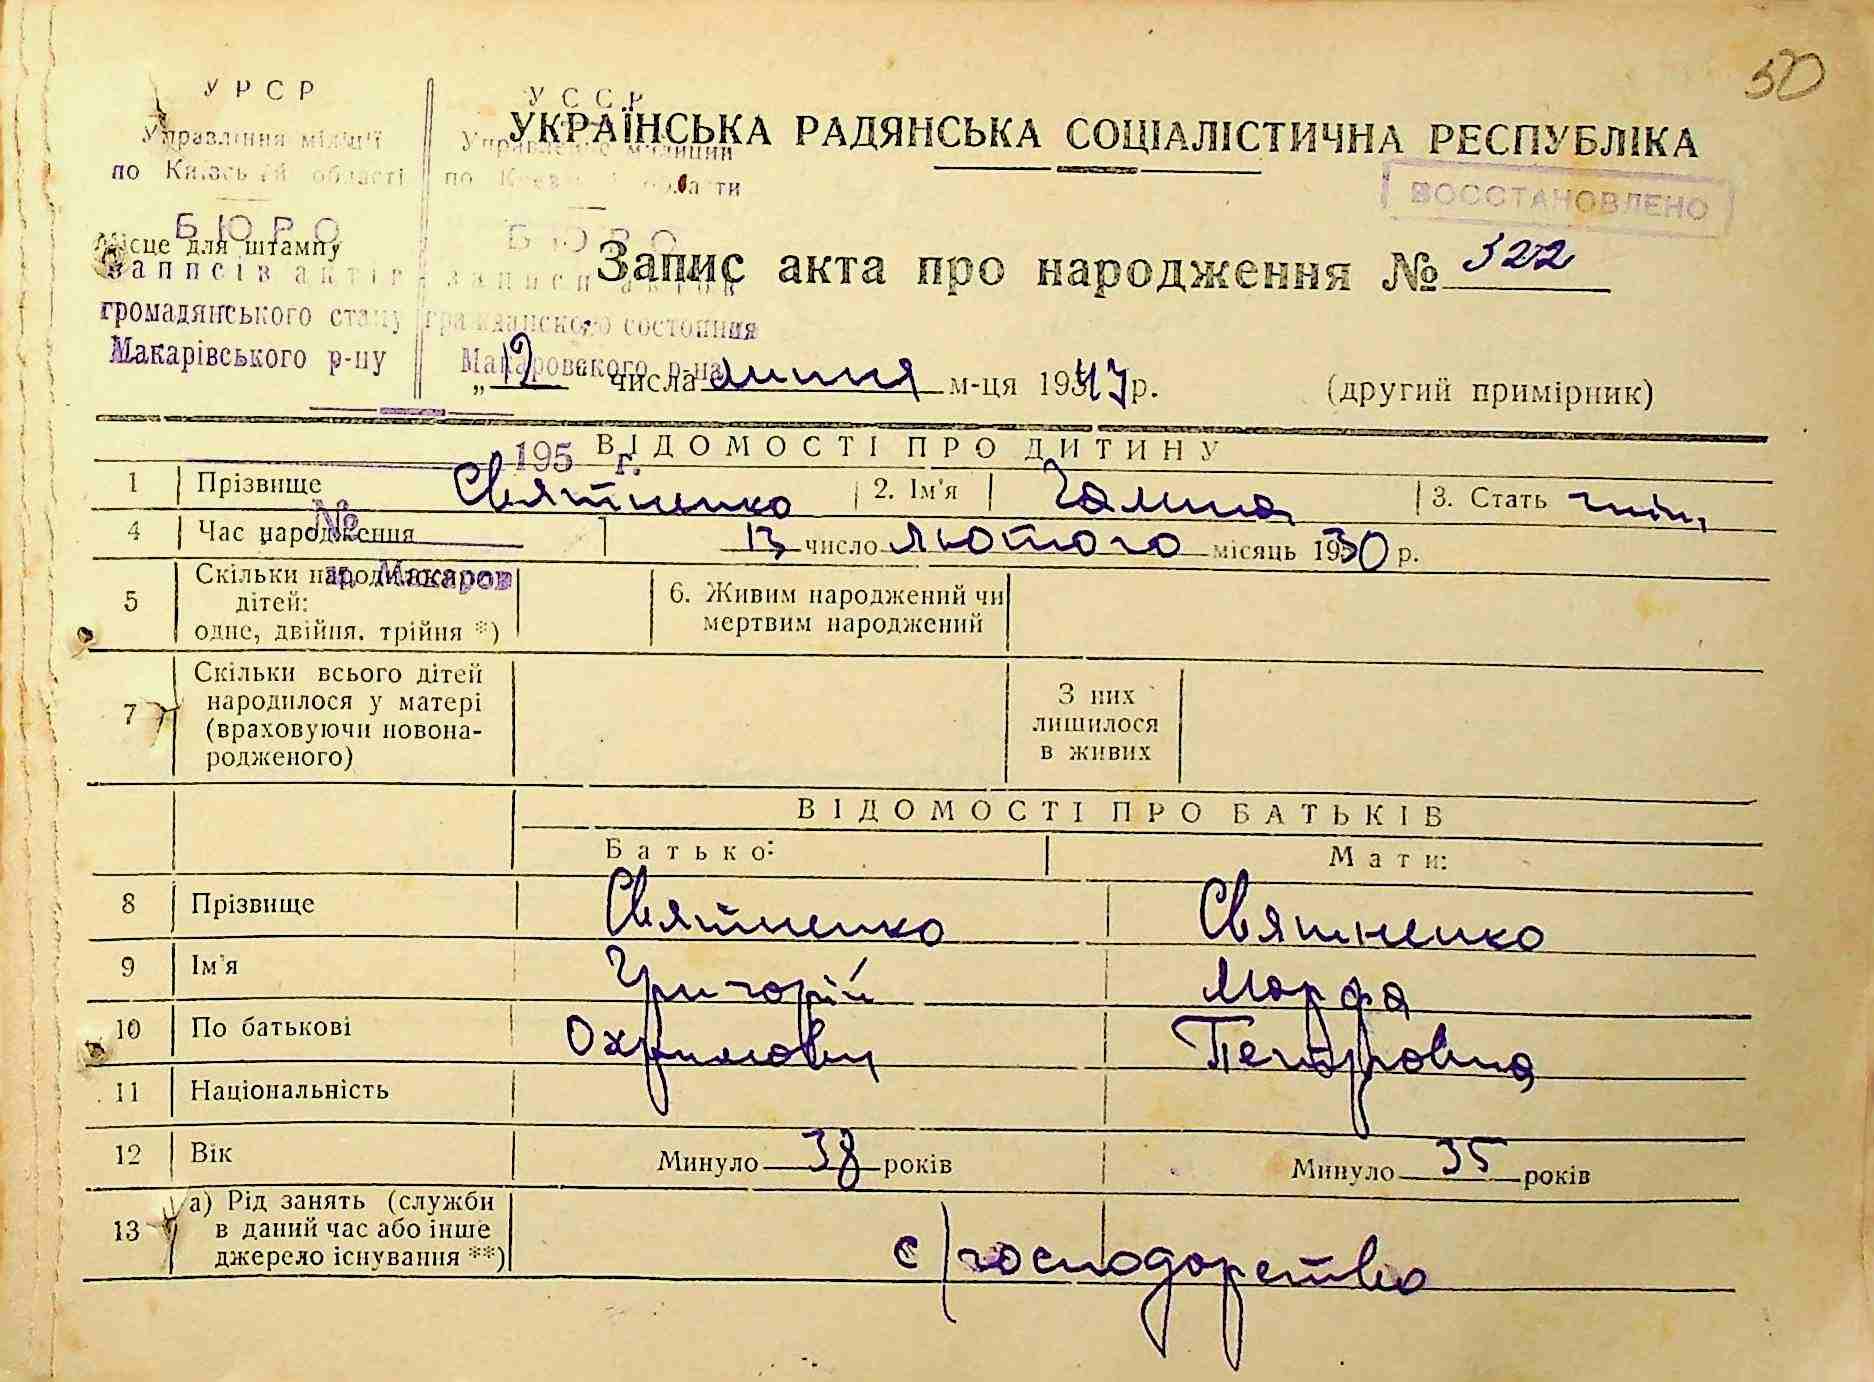 50
УРСР
Управління міліції
по Київській області
БЮРО
записів актів
громадянського стану
Макарівського р-ну
УССР
Управление милиции
по Киевской области
БЮРО
записи актов
гражданского состояния
Макаровского р-на
195 г.
№
п. Макаров
УКРАЇНСЬКА РАДЯНСЬКА СОЦІАЛІСТИЧНА РЕСПУБЛІКА
ВОССТАНОВЛЕНО
Місце для штампу
Запис акта про народження № 322
„12“ числа липня м-ця 1947 р. (другий примірник)
ВІДОМОСТІ ПРО ДИТИНУ
1 Прізвище Святненко 2. Ім'я Галина 3. Стать жін.
4 Час народження 13 число лютого місяць 1930 р.
5 Скільки народилося дітей: одне, двійня, трійня *) 6. Живим народжений чи мертвим народжений
7 Скільки всього дітей народилося у матері (враховуючи новонародженого) З них лишилося в живих
ВІДОМОСТІ ПРО БАТЬКІВ
Батько: Мати:
8 Прізвище Святненко Святненко
9 Ім'я Григорій Марфа
10 По батькові Охримович Петровна
11 Національність
12 Вік Минуло 38 років Минуло 35 років
13 а) Рід занять (служби в даний час або інше джерело існування **) с/господарство